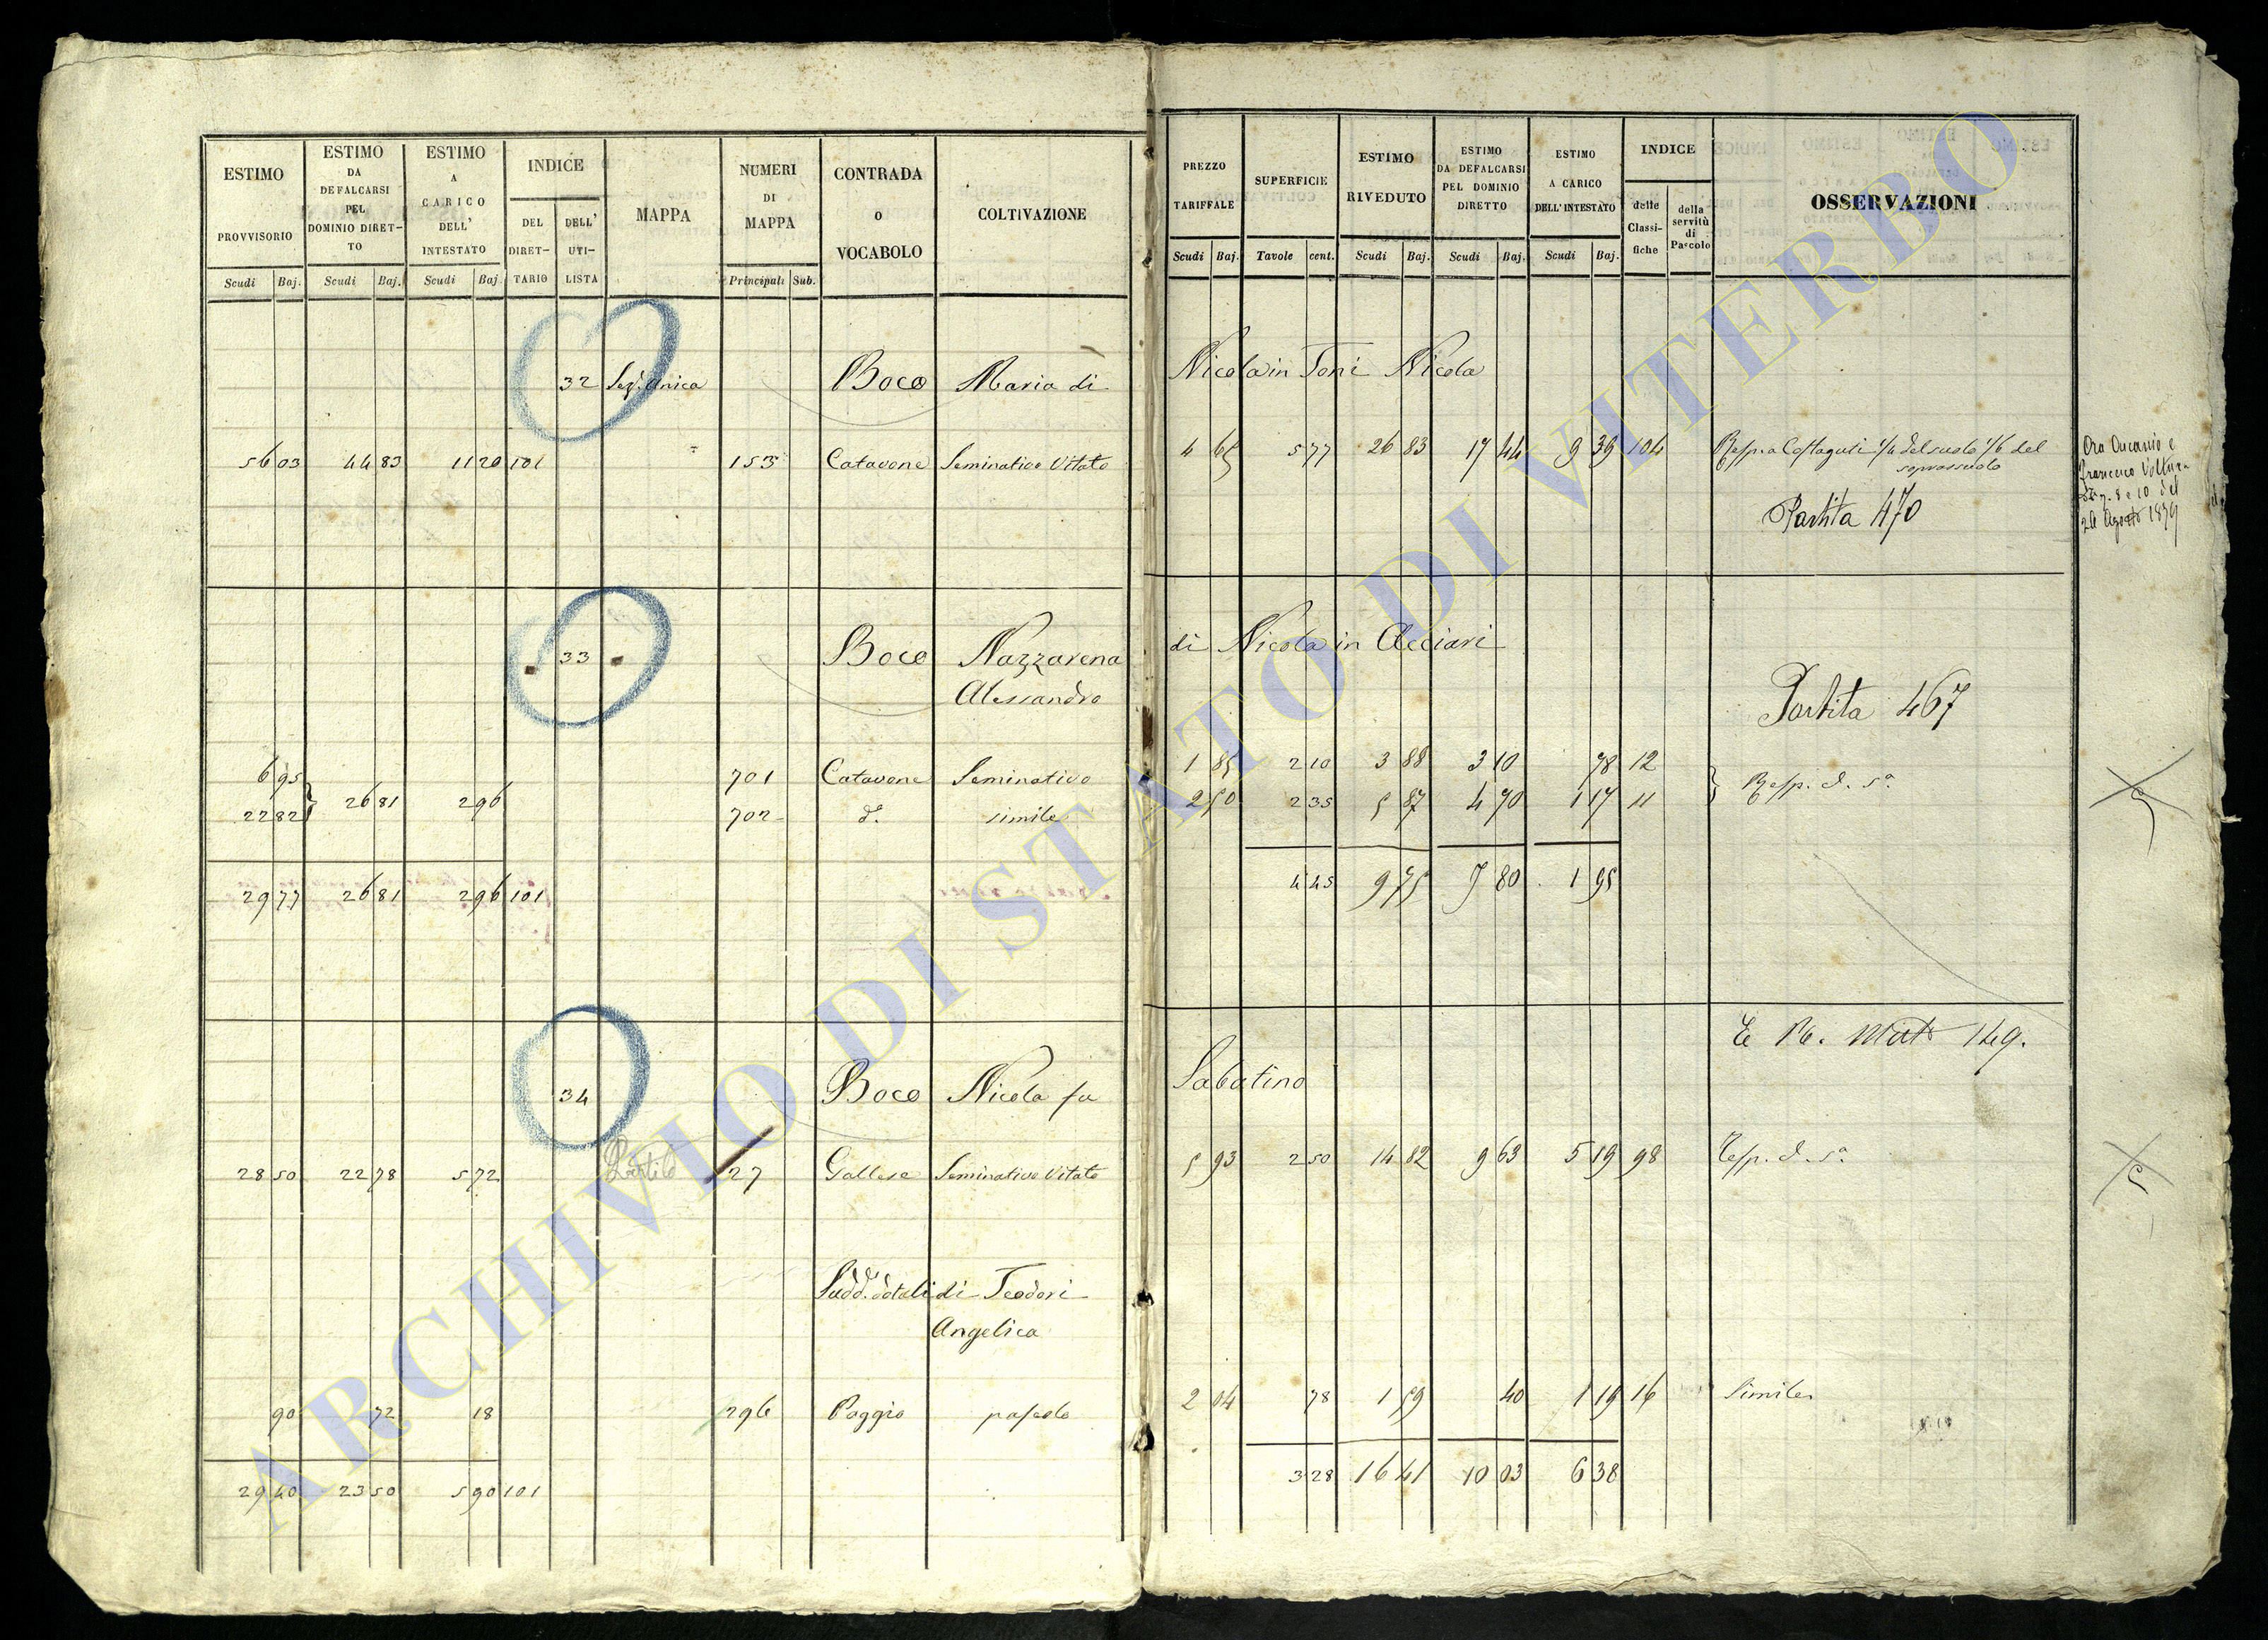 ESTIMO PROVVISORIO
Scudi Baj.
ESTIMO DA DEFALCARSI PEL DOMINIO DIRET-TO
Scudi Baj.
ESTIMO A CARICO DELL' INTESTATO
Scudi Baj.
INDICE
DEL DIRET-TARIO
DELL' UTI-LISTA
MAPPA
NUMERI DI MAPPA
Principali Sub.
CONTRADA O VOCABOLO
COLTIVAZIONE
PREZZO TARIFFALE
Scudi Baj.
SUPERFICIE
Tavole cent.
ESTIMO RIVEDUTO
Scudi Baj.
ESTIMO DA DEFALCARSI PEL DOMINIO DIRETTO
Scudi Baj.
ESTIMO A CARICO DELL' INTESTATO
Scudi Baj.
INDICE
delle Classi-fiche
della servitù di Pascolo
OSSERVAZIONI
32 Sez. Unica Boco Maria di Nicola in Toni Nicola
56 03 44 83 11 20 101 153 Catavone Seminativo Vitato 4 65 5 77 26 83 17 44 9 39 104 Resp. a Costaguti 1/4 del suolo 1/6 del
soprassuolo
Partita 470
Francesco
8 e 10 del
33 Boco Nazzarena di Nicola in Acciari
Alessandro
Partita 467
6 95 701 Catavone Seminativo 1 85 2 10 3 88 3 10 78 12
26 81 2 96 Resp. d. sa.
22 82 702 d. simile 2 50 2 35 5 87 4 70 1 17 11
29 77 26 81 2 96 101 4 45 9 75 7 80 1 95
149.
34 Boco Nicola fu Sabatino
28 50 22 78 5 72 Partita 27 Gallese Seminativo Vitato 5 93 2 50 14 82 9 63 5 19 98 Resp. d. sa.
Sudd. dotali di Teodori
Angelica
90 72 18 296 Poggio pascolo 2 04 78 1 59 40 1 19 16 Simile
29 40 23 50 5 90 101 3 28 16 41 10 03 6 38
ARCHIVIO DI STATO DI VITERBO